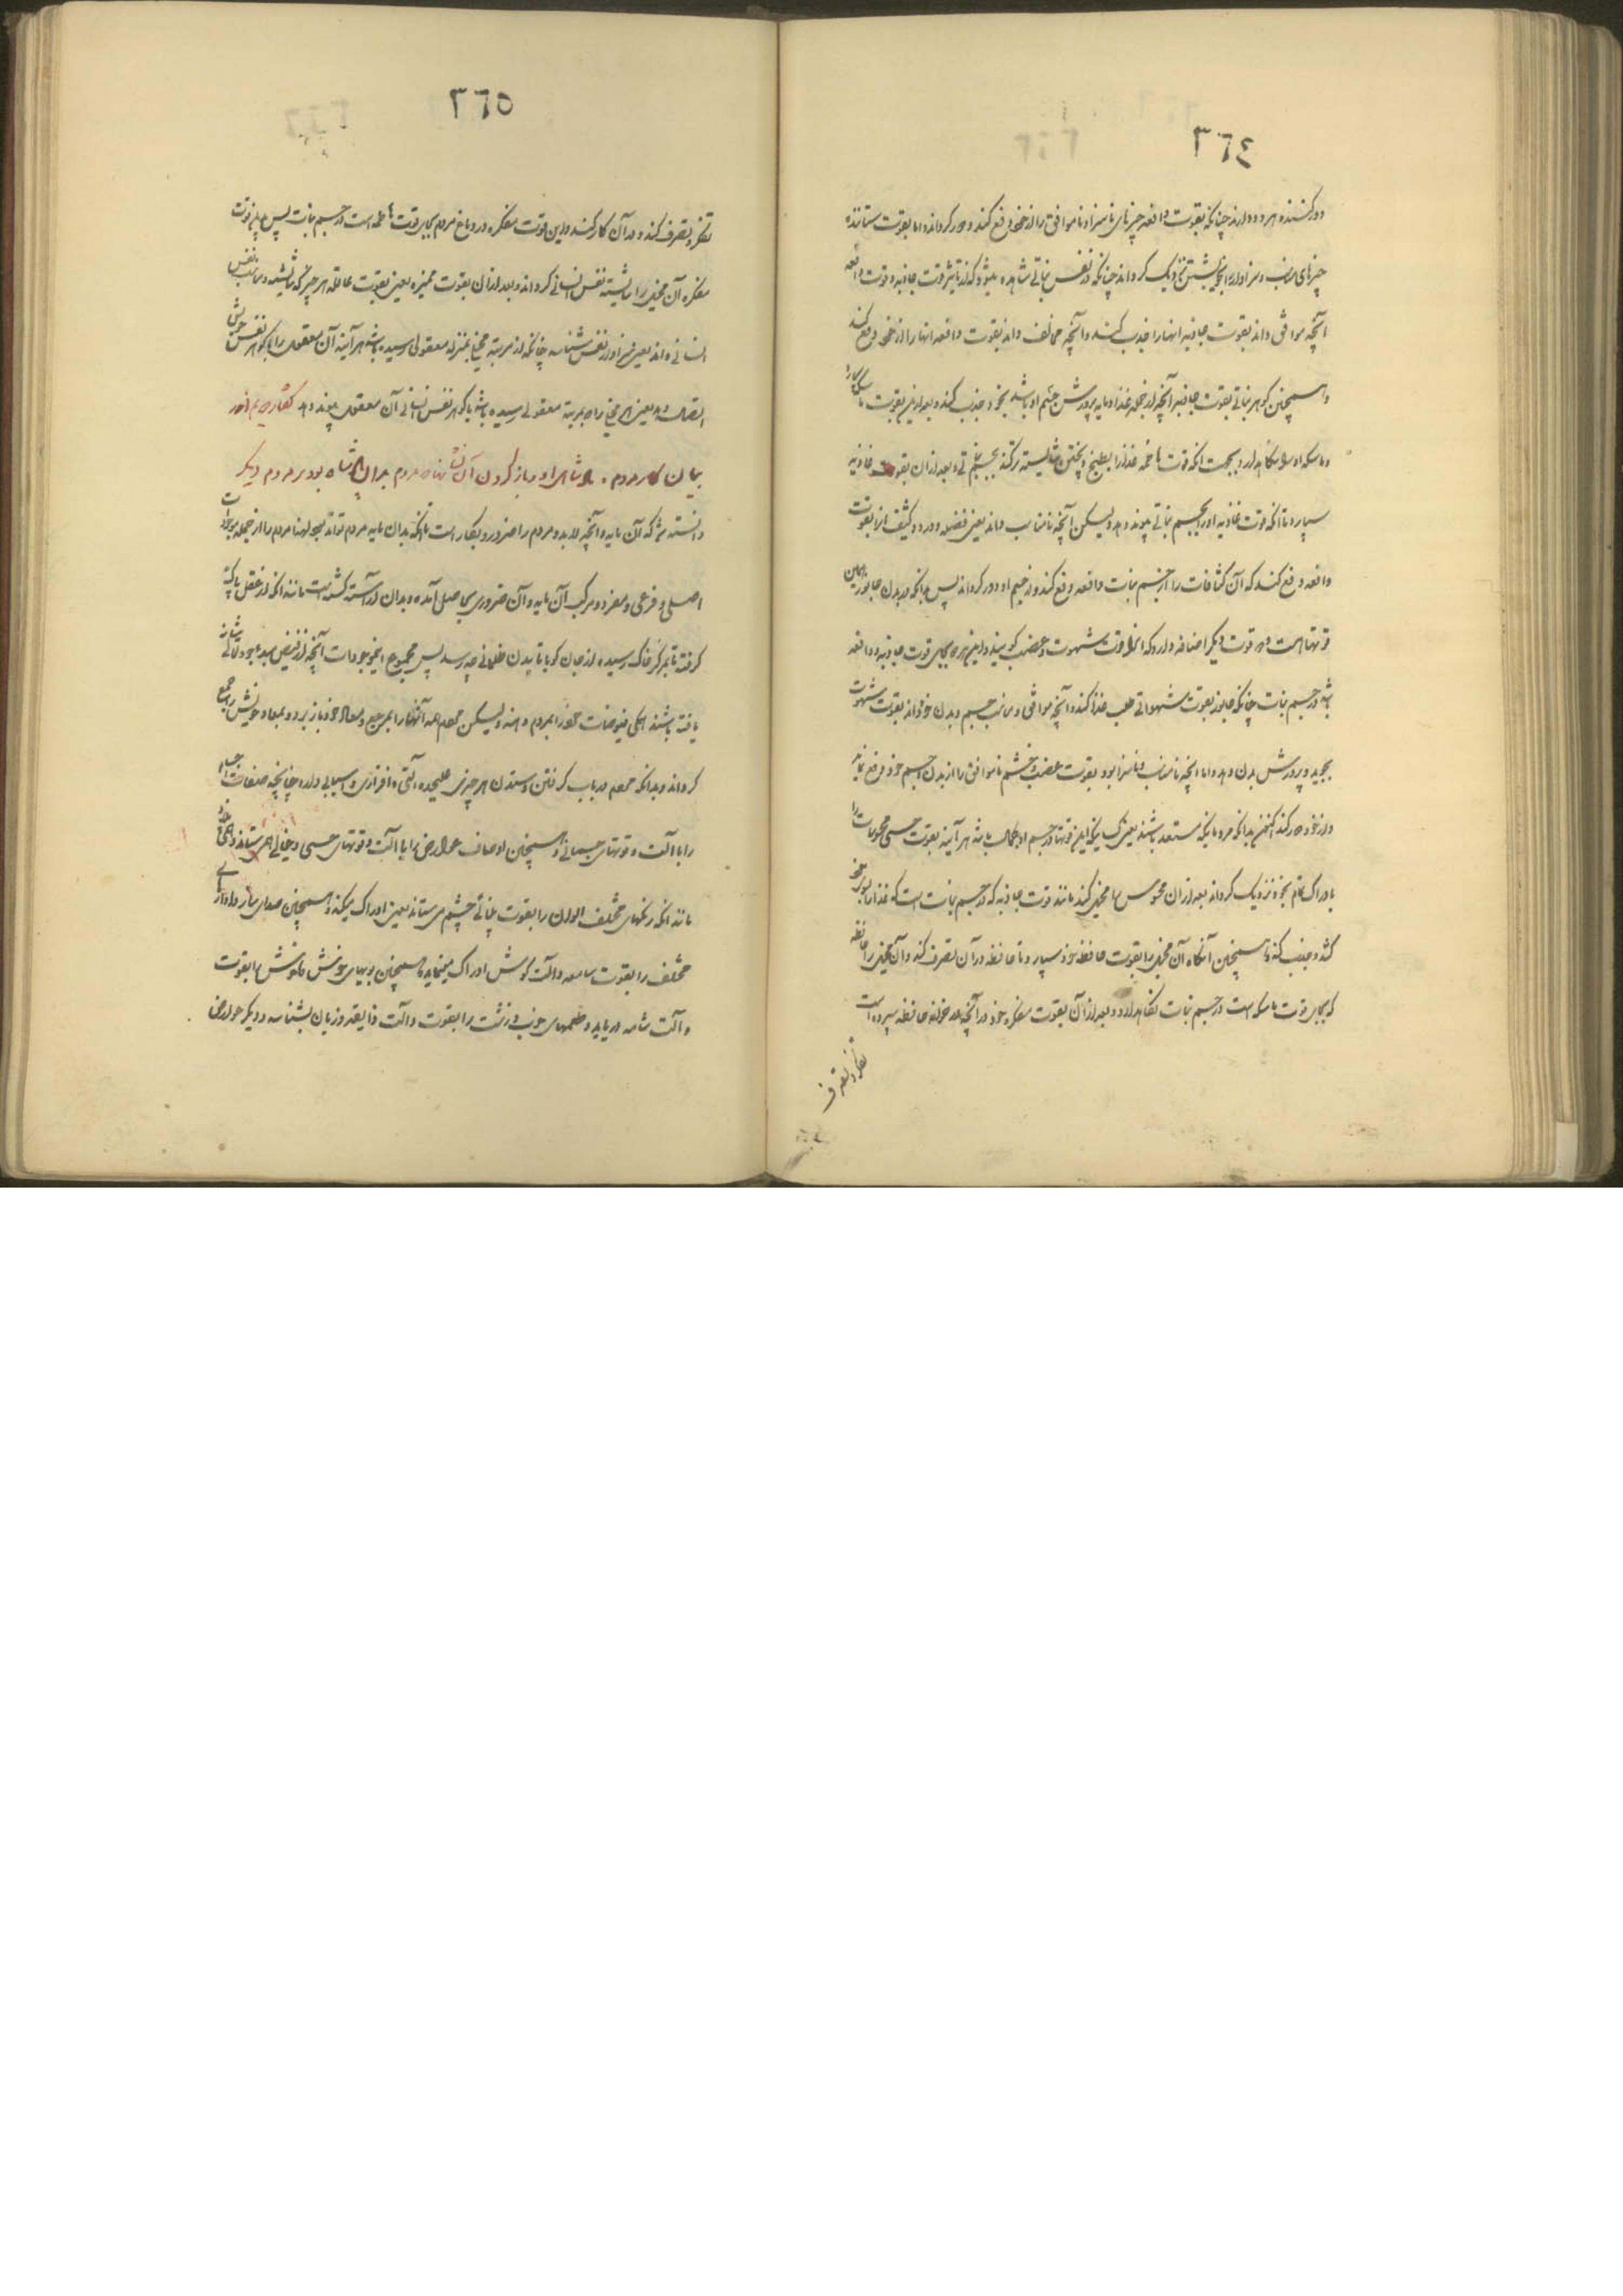 ٣٦٤
دور کننده هر دو دارند چنانکه بقوت دافعه چیزهای ناسزا و ناموافق را از خود دفع کند و دور گرداند و اما بقوت ستاننده
چیزهای مناسب و سزاوار را بخویشتن نزدیک گرداند چنانکه در نفس نباتی مشاهده میشود که از تاثیر قوت جاذبه و قوت دافعه
آنچه موافق داند بقوت جاذبه انها را جذب کند و آنچه مخالف داند بقوت دافعه انها را از خود دفع کند
و همچنین گوهر نباتی بقوت جاذبه آنچه از جمله غذا و مایه پرورش جسم او باشد بخود جذب کند و بعد ازین بقوت ماسکه سپارد
و ماسکه او را نگاهدارد و بجهت انکه قوت هاضمه غذا را بطبخ و پختن شایسته ترکند بجسم نباتی و بعد از ان بقوت غاذیه
سپارد تا انکه قوت غاذیه او را بجسم نباتی پیوند دهد ولیکن آنچه نامناسب داند یعنی فضله و درد و کثیف انرا بقوت
دافعه دفع کند که آن کثافات را از جسم نبات دافعه دفع کند و از جسم او دور گرداند پس بدانکه در بدن جانور همین
قوتها است و دو قوت دیگر اضافه دارد که انرا قوت شهوت و غضب گویند و این هر دو بجای قوت جاذبه و دافعه
باشد در جسم نبات چنانکه جانور بقوت شهوانی طلب غذا کند و آنچه موافق و مناسب جسم و بدن خود داند بقوت شهوت
بجوید و پرورش بدن دهد و اما انچه نامناسب و ناسزا بود بقوت غضب و خشم ناموافق را از بدن و جسم خود دفع نماید
و از خود دور کند اکنون بدانکه مردمانیکه مستعد باشند یعنی کسانیکه این قوتها در جسم او بکمال باشد هر آینه بقوت حسی محسوسات را
بادراک تمام بخود نزدیک گرداند بعد از ان محسوس را مخیل کند مانند قوت جاذبه که در جسم نبات است که غذا را بسوی خود
کشد و جذب کند و همچنین آنگاه آن مخیل را بقوت حافظه خود سپارد تا حافظه در آن تصرف کند و آن مخیل را حافظه
که بجای قوت ماسکه است در جسم نبات نگاهدارد و بعد از آن بقوت مفکره خود در آنچه در خزانه حافظه سپرده است
تفکر و تصرف
٣٦٥
تفکر و تصرف کند و در آن کار کند و این قوت مفکره در دماغ مردم بجای قوت هاضمه است در جسم نبات پس بدین قوت
مفکره آن مخیل را شایسته نفس انسانی گرداند و بعد از ان بقوت ممیزه یعنی بقوت عاقله هر چیز که شایسته و مناسب نفس
انسانی داند یعنی سزاوار نفس شناسد چنانکه از مرتبه مخیل بمنزله معقولی رسیده باشد هر آینه آن معقول را با گوهر نفس خویش
اتصال دهد یعنی هر مخیل را که بمرتبه معقولی رسیده باشد با گوهر نفس انسانی آن معقول پیوند دهد گفتار چهارم اندر
بیان کار مردم دانسته شد که آن مایه و آنچه لابد و مردم را ضرور و بکار است تا انکه بدان مایه مردم تواند بود لهذا مردم را از جمله موجودات
اصلی و فرعی و مفرد و مرکب آن مایه و آن ضروری بحاصل آمده و بدان آراسته گشته است مانند انکه از عقل پاک
گرفته تا بمرکز خاک رسیده از جان گویا تا بدن ظلمانی چه رسد پس مجموع این موجودات آنچه از فیض مبدء وجود تعالی شانه
یافته باشند همگی فیوضات خود را بمردم دهند ولیکن مردم همه آنها را بمرجع و معاد خود باز برد و بمعاد خویش راجع
گرداند و بدانکه مردم در باب گرفتن و ستدن هر چیزی علیحده آلتی و افزاری و اسبابی دارد چنانچه صفات اجسام
را با آلت و قوتهای جسمانی و همچنین اوصاف عوارض را با آلت و قوتهای حسی و خیالی همی ستاند
مانند انکه رنگهای مختلف الالوان را بقوت بینائی چشم می ستاند یعنی ادراک میکند و همچنین صدای ساز و آوازهای
مختلف را بقوت سامعه و آلت گوش ادراک مینماید و همچنین بویهای خوش و ناخوش را بقوت
و آلت شامه دریابد و طعمهای خوب و زشت را بقوت و آلت ذایقه و زبان بشناسد و دیگر عوارض